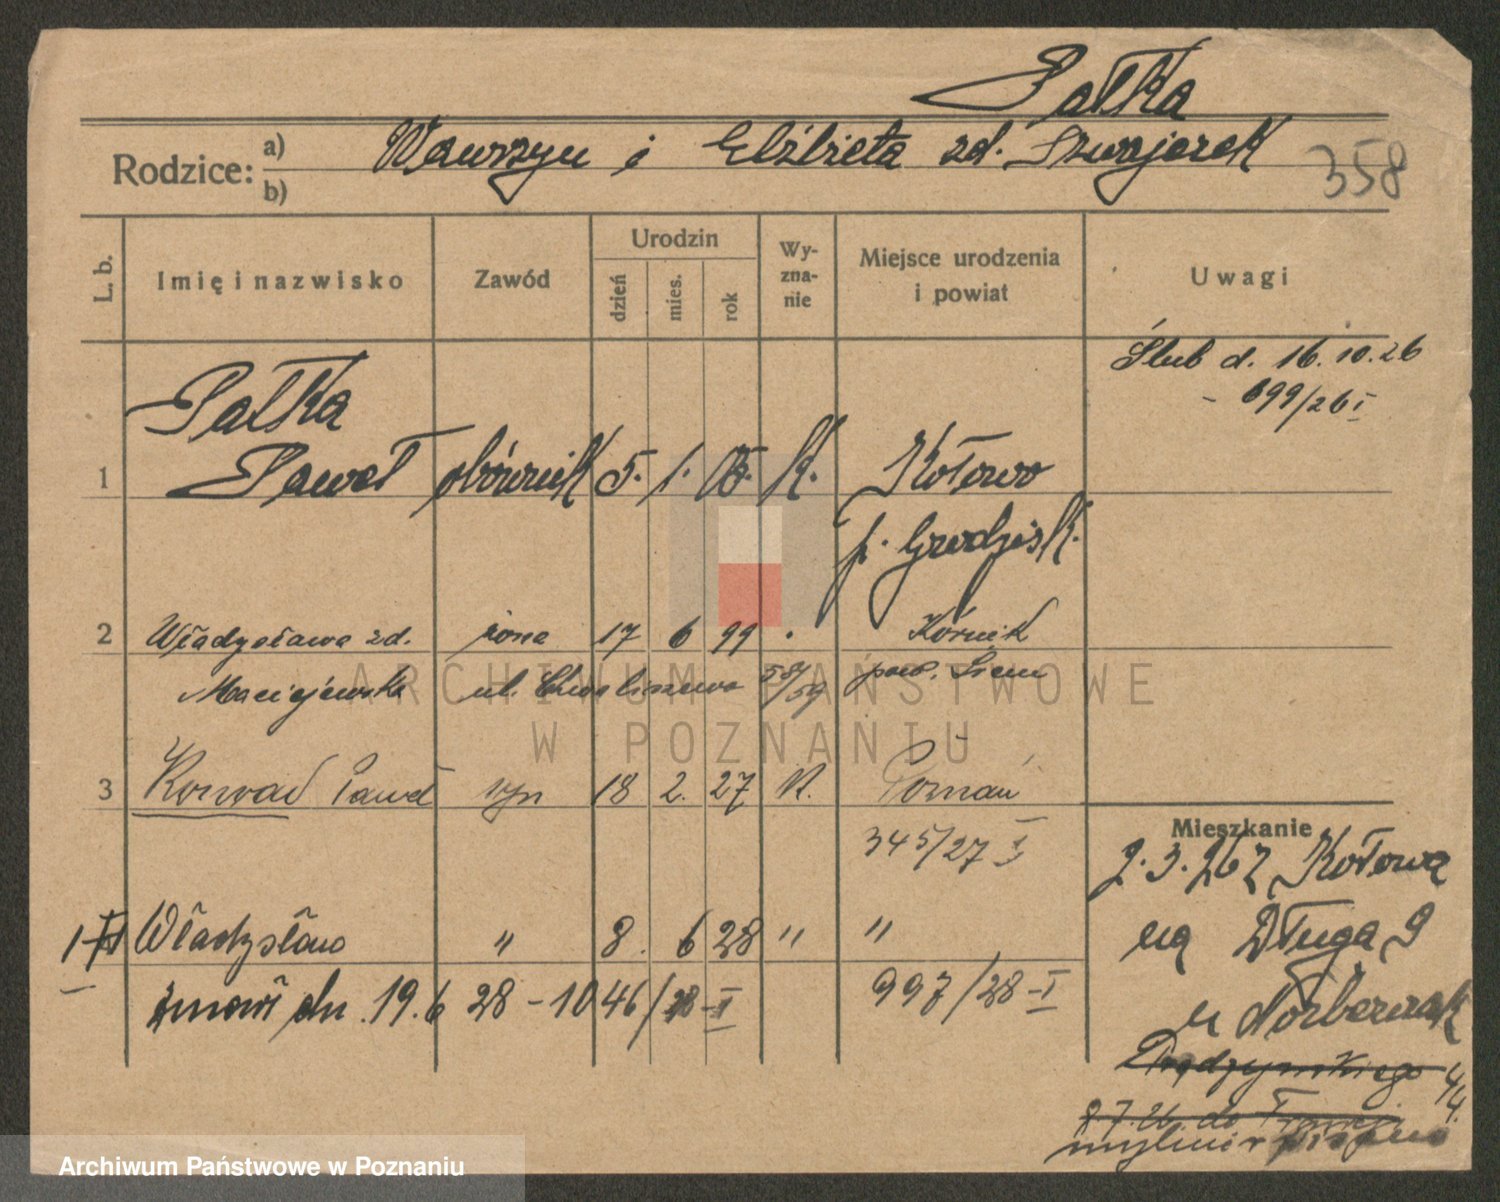 Pałka
Rodzice: a) Wawrzyn i Elżbieta zd. Szwajorek
b)
358
L. b.
Imię i nazwisko
Zawód
Urodzin
dzień
mies.
rok
Wy-
zna-
nie
Miejsce urodzenia
i powiat
Uwagi
Ślub d. 16.10.26
- 699/26 I
Pałka
1 Paweł obównik 5. 1. K. Kotowo
p. Grodzisk.
2 Władysława zd. żona 17 6 99 Kórnik
Maciejewska ul. Chwaliszewo 58/59 pow. Śrem
3 Konrad Paweł syn 18 2. 27 K. Poznań
345/27 I
Mieszkanie
2.3.26 z Kotowa
na Długa 9
u Norberczak
1 Władysław " 8. 6 28 " "
zmarł dn. 19.6 28 - 1046/28-II
997/28-I
4/4.
mylnie
ARCHIWUM PAŃSTWOWE
W POZNANIU
Archiwum Państwowe w Poznaniu